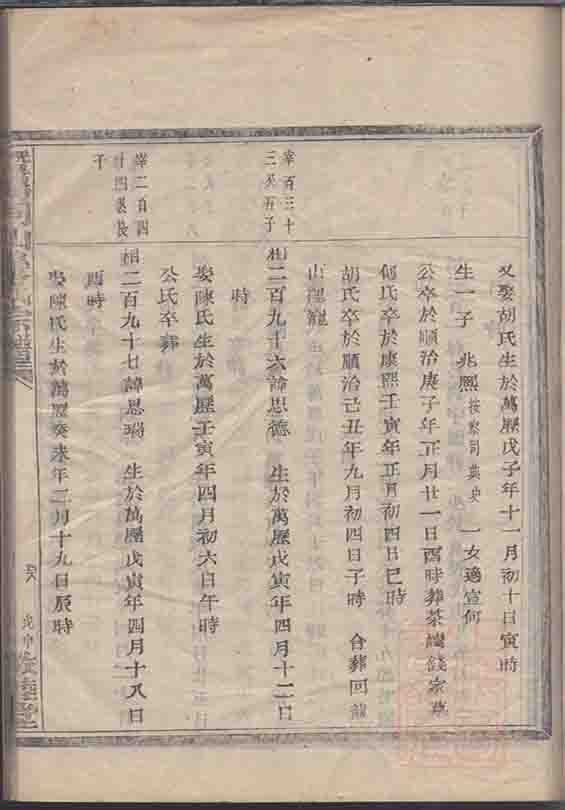 又娶胡氏生於萬歷戊子年十一月初十日寅時
生一子 兆熙 按察司典史 一女適宣何
公卒於順治庚子年正月廿一日酉時葬茶
何氏卒於康熙壬寅年正月初四日巳時
胡氏卒於順治己丑年九月初四日子時 合葬回龍
山
宰百三十
三 五子
相二百九十六諱思德 生於萬歷戊寅年四月十二日
時
娶陳氏生於萬歷壬寅年四月初六日午時
公氏卒葬
宰二百四
十四 長
子
相二百九十七諱思瑞 生於萬歷戊寅年四月十八日
酉時
娶陳氏生於萬歷癸未年二月十九日辰時
宗譜